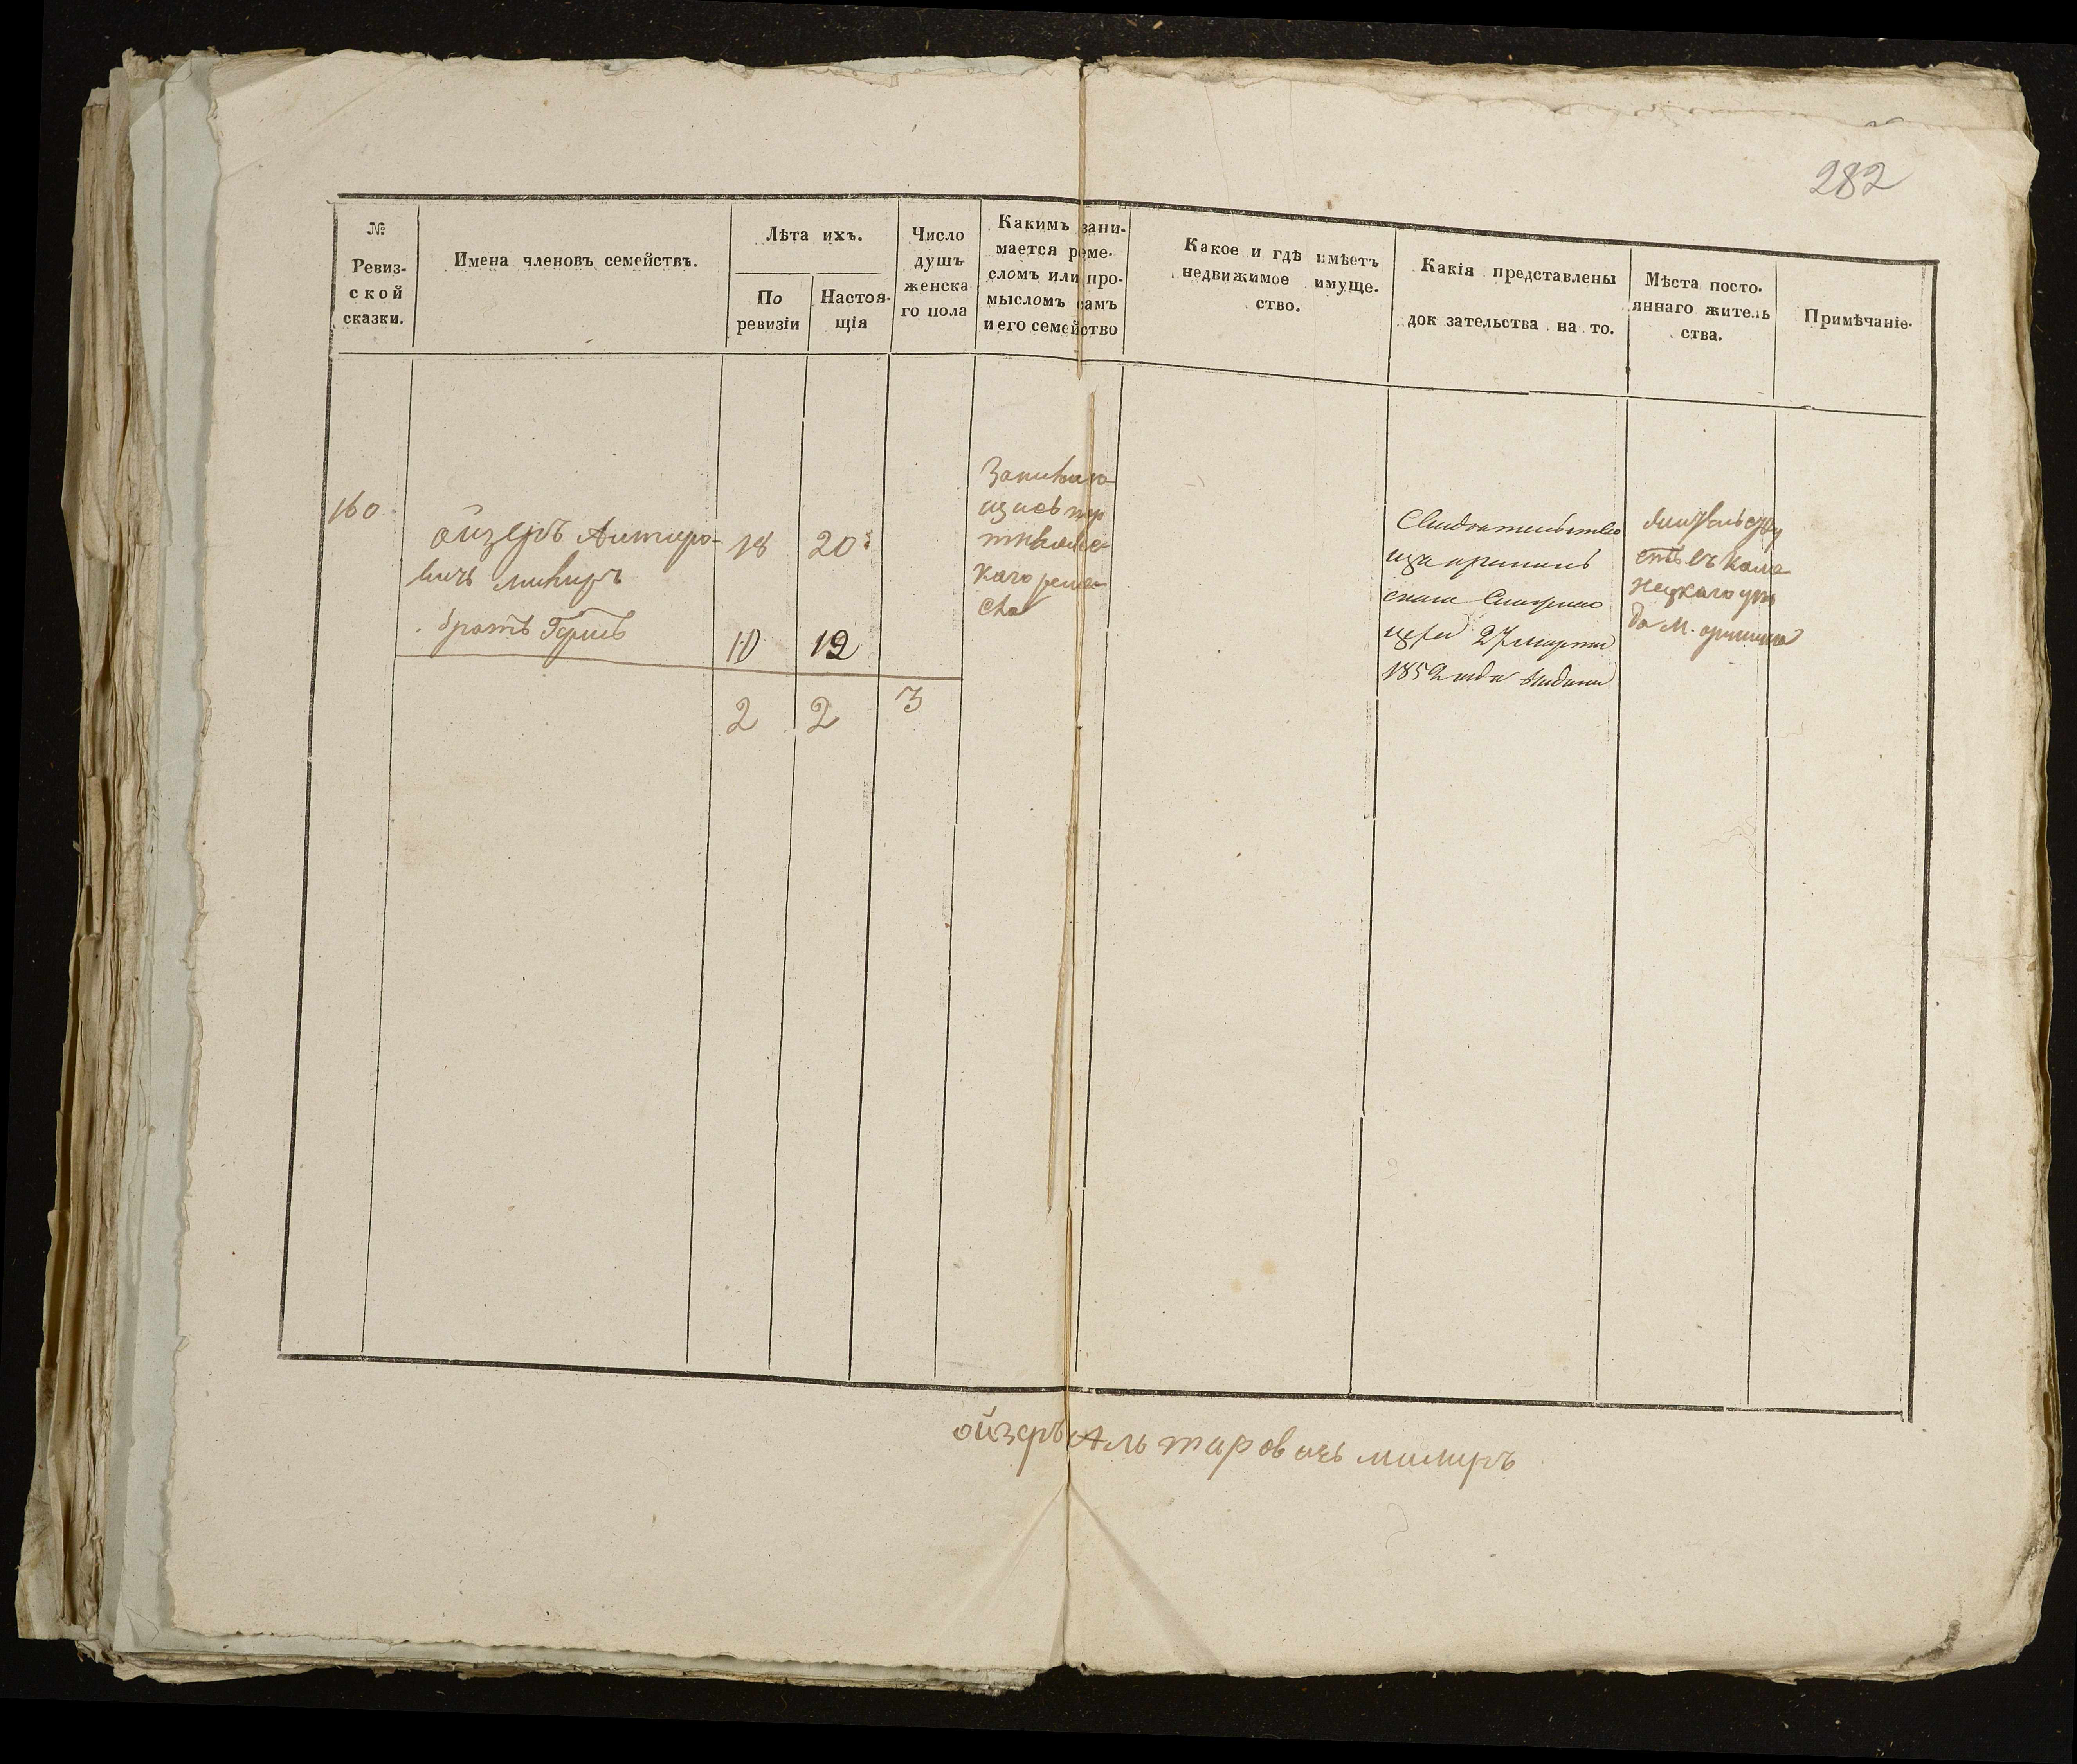 282
№
Ревиз-
ской
сказки.
Имена членовъ семействъ.
Лѣта ихъ.
По
ревизіи
Настоя-
щія
Число
душъ
женска
го пола
Какимъ зани-
мается реме-
сломъ или про-
мысломъ самъ
и его семейство
Какое и гдѣ имѣетъ
недвижимое имуще-
ство.
Какія представлены
док зательства на то.
Мѣста посто-
яннаго житель
ства.
Примѣчаніе.
160
ойзеръ Алтиро-
вичъ милиръ
18
20
братъ
10
12
2
2
3
Занимаю-
щиоь пор
тняжес-
каго реме-
сла
Свидѣтельство
сказа
27 марта
1852 года выдана
въ Каме
нецкаго уѣз
да м.
ойзеръ Альтаровичъ милиръ